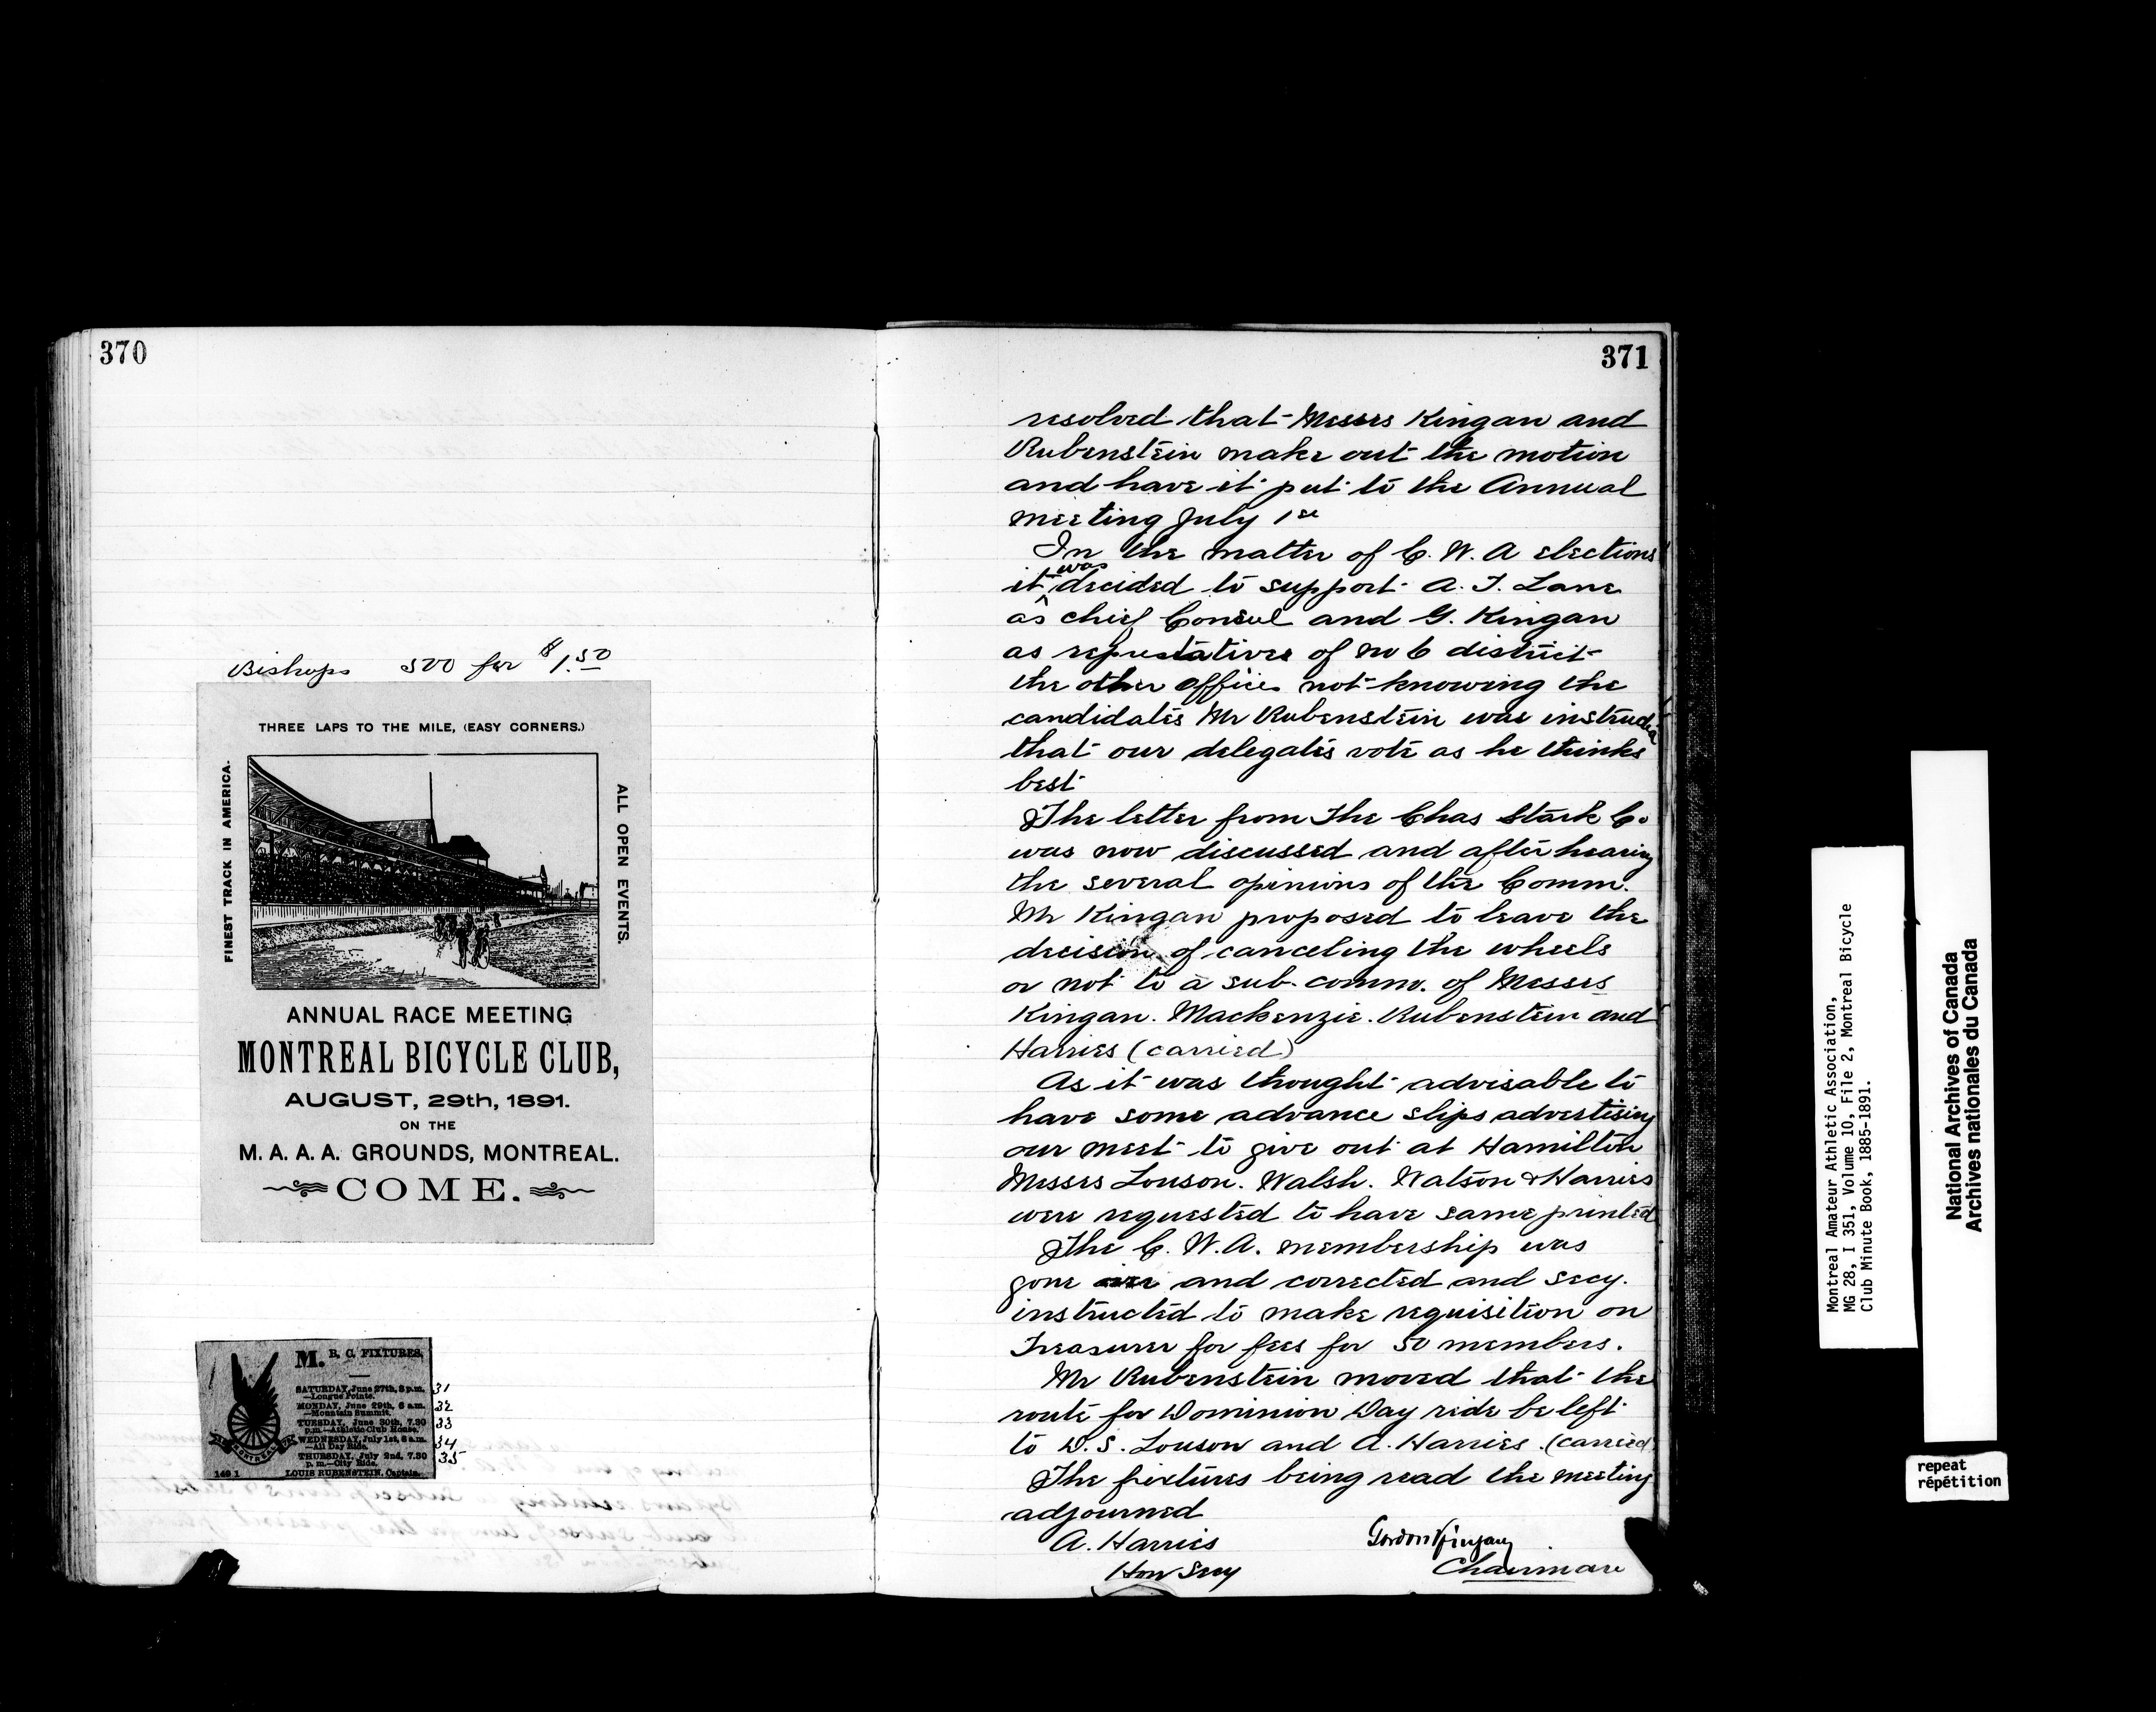 370
Bishops 500 for $1.50
THREE LAPS TO THE MILE, (EASY CORNERS.)
FINEST TRACK IN AMERICA.
ALL OPEN EVENTS.
ANNUAL RACE MEETING
MONTREAL BICYCLE CLUB,
AUGUST, 29th, 1891.
ON THE
M. A. A. A. GROUNDS, MONTREAL.
COME.
M. B. C. FIXTURES,
SATURDAY, June 27th, 3 p.m. 31
—Longue Pointe.
MONDAY, June 29th, 6 a.m. 32
—Mountain Summit.
TUESDAY, June 30th, 7.30 33
p.m.—Athletic Club House.
WEDNESDAY, July 1st, 8 a.m. 34
—All Day Ride.
THURSDAY, July 2nd, 7.30 35
p.m.—City Ride.
149 1 LOUIS RUBENSTEIN, Captain.
371
resolved that Messrs Kingan and
Rubenstein make out the motion
and have it put to the Annual
meeting July 1st
In the matter of C. W. A elections
it was decided to support A. T. Lane
as chief Consul and G. Kingan
as representatives of no 6 district
the other offices not knowing the
candidates Mr Rubenstein was instructed
that our delegates vote as he thinks
best
The letter from The Chas Stark Co
was now discussed and after hearing
the several opinions of the Comm.
Mr Kingan proposed to leave the
decision of canceling the wheels
or not to a sub-comm. of Messrs
Kingan. Mackenzie. Rubenstein and
Harries (carried)
As it was thought advisable to
have some advance slips advertising
our meet to give out at Hamilton
Messrs Louson. Walsh. Watson & Harries
were requested to have same printed
The C. W. A. membership was
gone over and corrected and secy.
instructed to make requisition on
Treasurer for fees for 50 members.
Mr Rubenstein moved that the
route for Dominion Day ride be left
to D. S. Louson and A. Harries. (carried)
The fixtures being read the meeting
adjourned
A. Harries Gordon Kingan
Hon Secy Chairman
Montreal Amateur Athletic Association,
MG 28, I 351, Volume 10, File 2, Montreal Bicycle
Club Minute Book, 1885-1891.
National Archives of Canada
Archives nationales du Canada
repeat
répétition